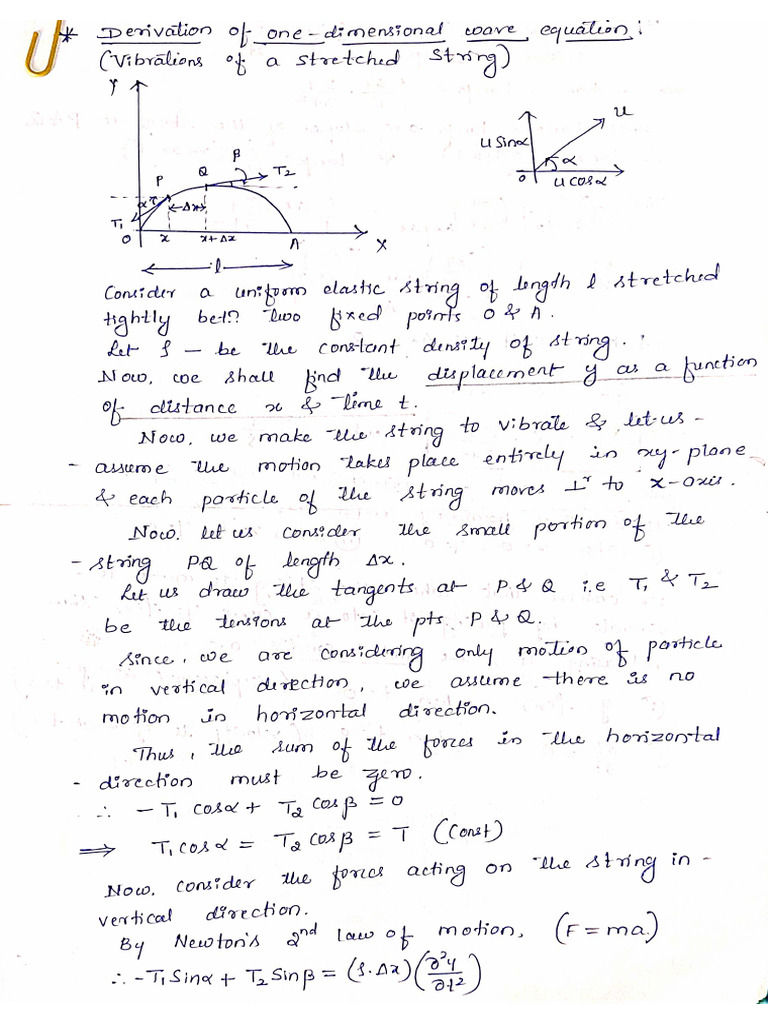 * Derivation of one-dimensional wave equation:
(Vibrations of a stretched string)
Y
P
Q
β
T2
αT
T1
←Δx→
O
x
x+Δx
A
X
l
u
u sinα
α
O
u cosα
Consider a uniform elastic string of length l stretched
tightly betn two fixed points O & A.
Let ρ – be the constant density of string.
Now, we shall find the displacement y as a function
of distance x & time t.
Now, we make the string to vibrate & let-us -
- assume the motion takes place entirely in xy-plane
& each particle of the string moves ⊥r to x-axis.
Now, let us consider the small portion of the
- string PQ of length Δx.
Let us draw the tangents at P & Q i.e T1 & T2
be the tensions at the pts P & Q.
Since, we are considering only motion of particle
in vertical direction, we assume there is no
motion in horizontal direction.
Thus, the sum of the forces in the horizontal
- direction must be zero.
∴ -T1 cosα + T2 cosβ = 0
⟹ T1 cosα = T2 cosβ = T (Const)
Now, consider the forces acting on the string in -
vertical direction.
By Newton's 2nd law of motion, (F = ma)
∴ -T1 Sinα + T2 Sinβ = (ρ.Δx)(∂²y/∂t²)